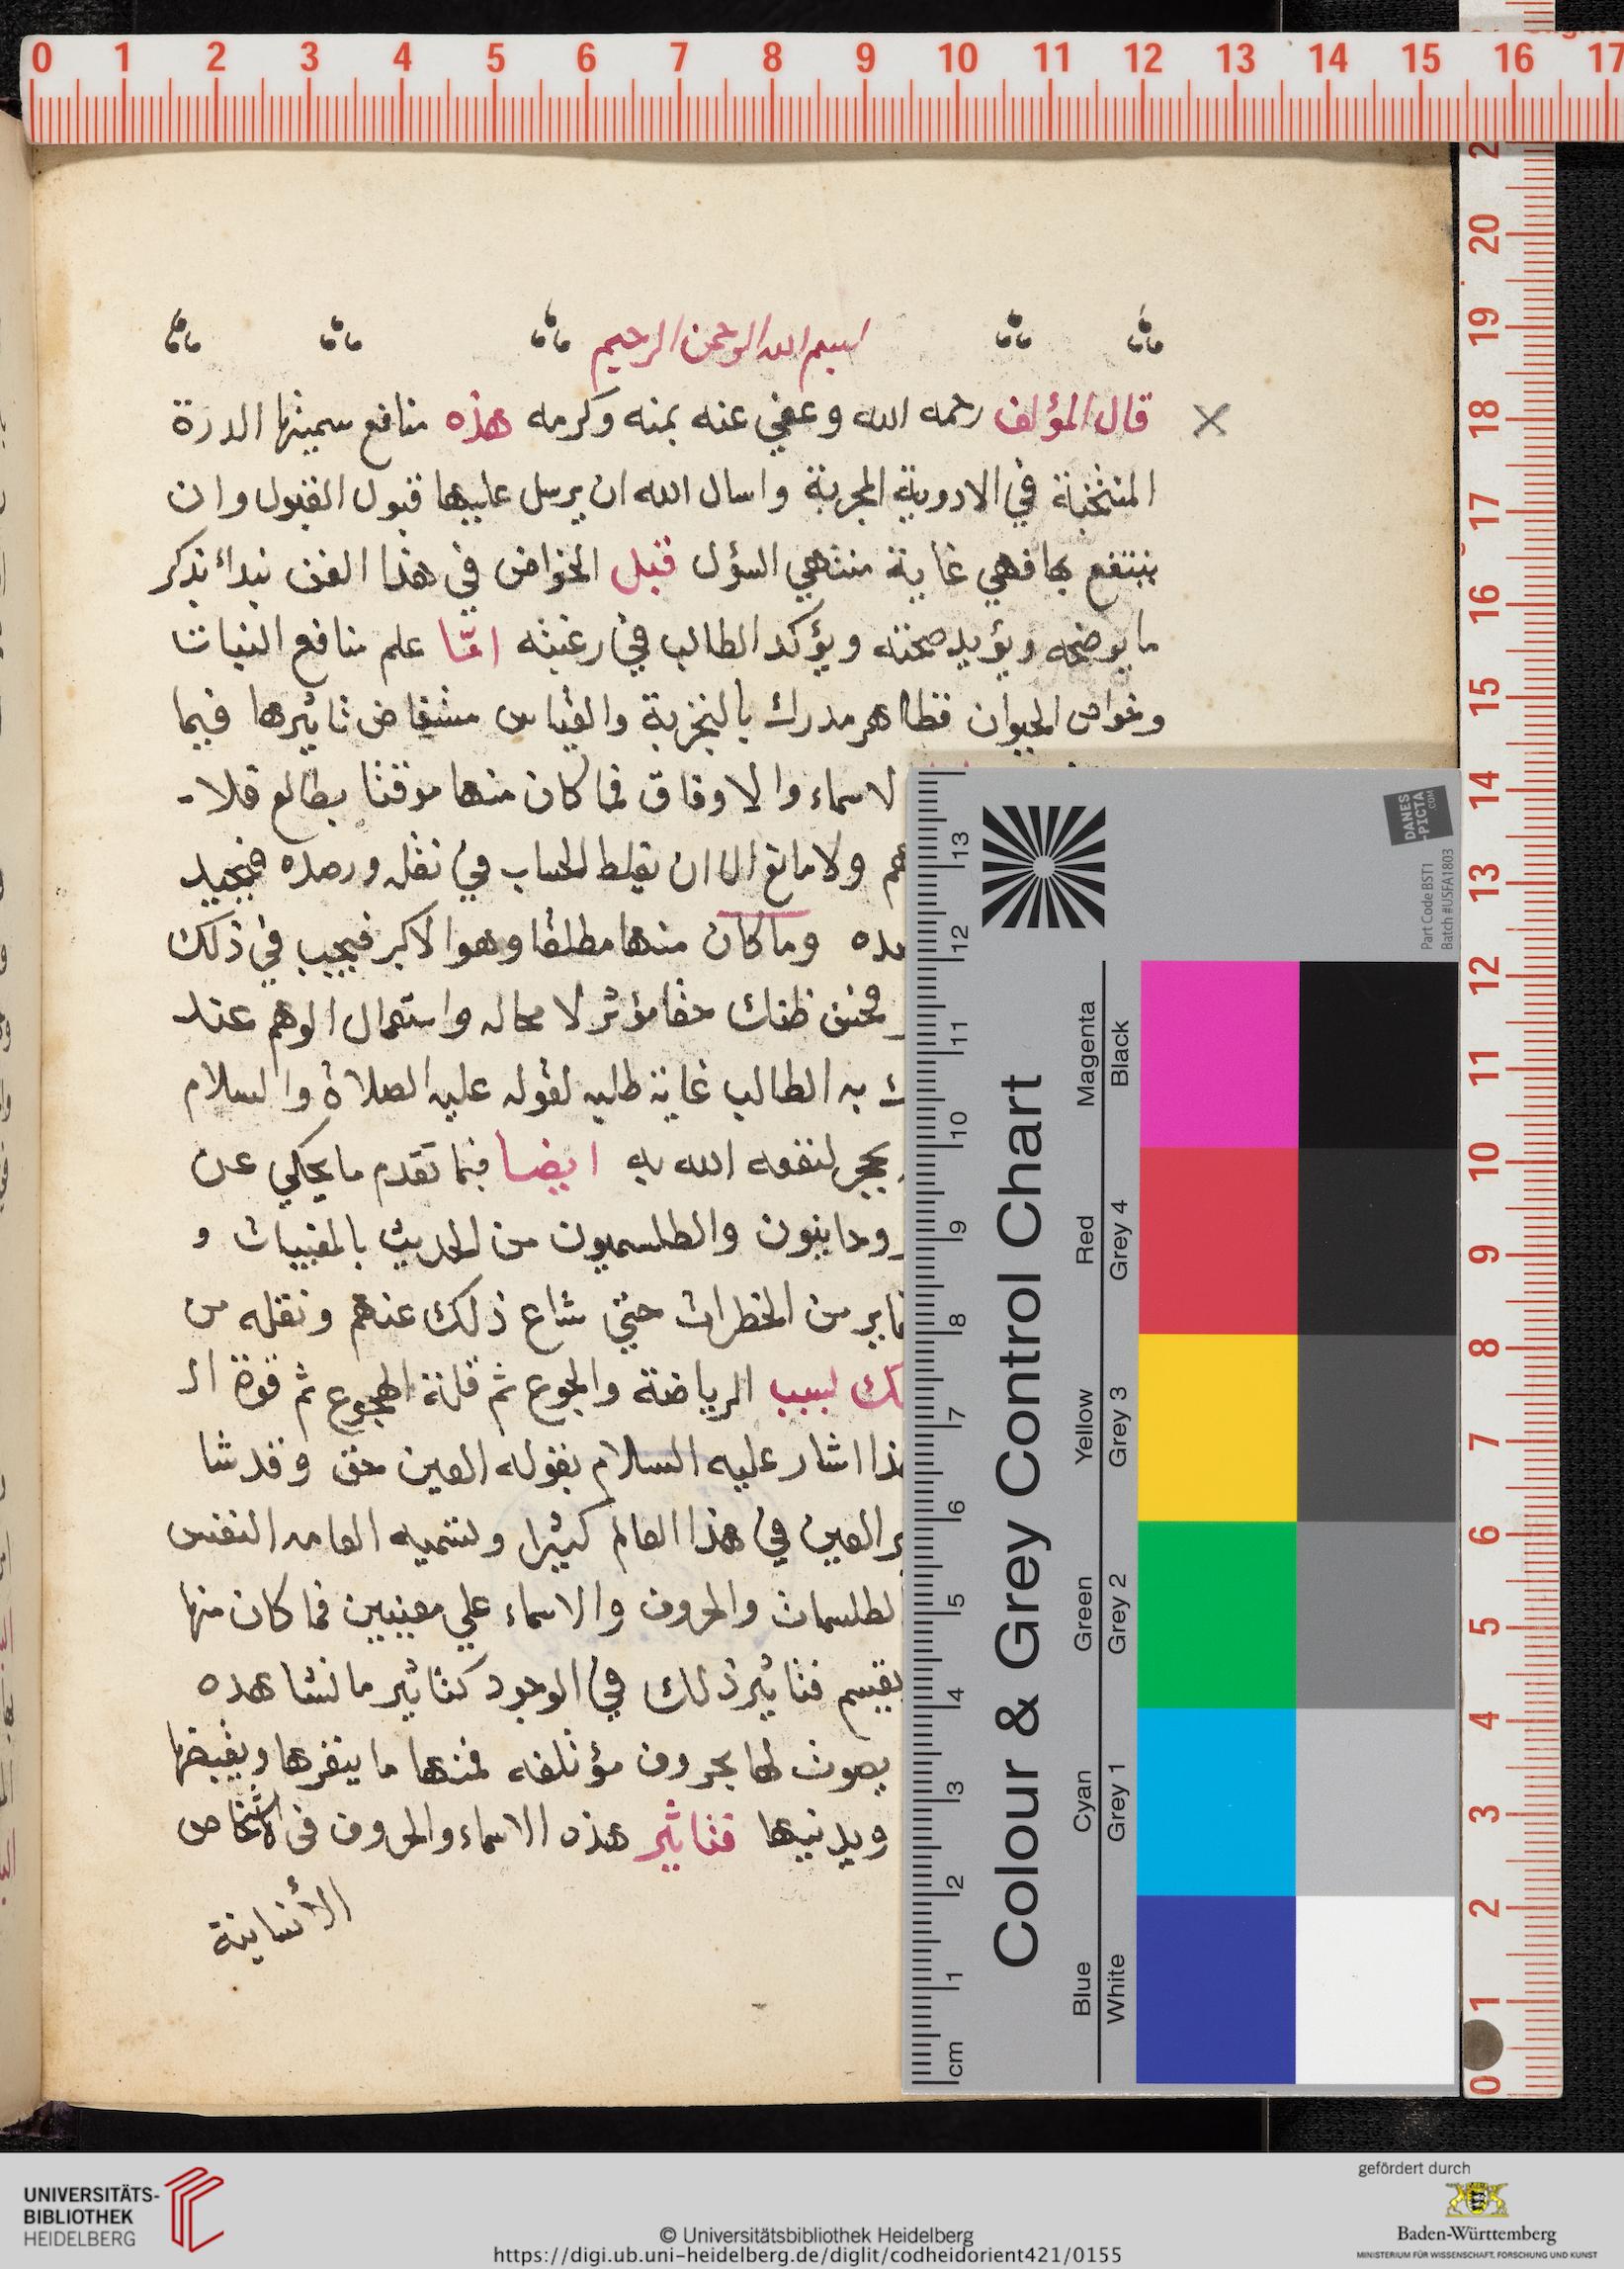 0 1 2 3 4 5 6 7 8 9 10 11 12 13 14 15 16 17
بسم الله الرحمن الرحيم
قال المؤلف رحمه الله وعفي عنه بمنه وكرمه هذه منافع سميتها الدرة
المنتخبة في الادوية المجربة واسال الله ان يرسل عليها قبول القبول وان
ينتفع بها فهي غاية منتهي السؤل قبل الخواض في هذا الفن نبدائ بذكر
ما يوضحه ويؤيد صحته ويؤكد الطالب في رغبته امّا علم منافع النبات
وخواص الحيوان فظاهر مدرك بالتجربة والقياس مشفاض تاثيرها فيما
لاسماء والاوفاق فما كان منها موقتا بطالع فلا
هم ولا مانع ال ان يغلط الحساب في نقله ورصده
ده وما كان منها مطلقا وهو الاكبر فيجب في ذلك
ظنك حقا مؤثر لا محاله واستعمال الوهم عند
ك به الطالب غاية طلبه لقوله عليه الصلاة والسلام
بحجر لنفعه الله به ايضا فيما تقدم ما يحكي عن
روحانيون والطلسميون من الحديث بالمغيبات و
من الخطرات حتي شاع ذلك عنهم ونقله من
لك لسبب الرياضة والجوع ثم قلة الهجوع ثم قوة ال
ذا اشار عليه السلام بقوله العين حق وقد شا
ر العين في هذا العالم كثيرا وتسميه العامه النفس
لطلسمات والحروف والاسماء علي معنيين فما كان منها
بقسم فتاثير ذلك في الوجود كتاثير ما نشاهده
بصوت لها بحروف مؤتلفه فمنها ما ينفرها ويقبضها
ويدنيها فتاثير هذه الاسماء والحروف في الاشخاص
الأنسانية
DANES
-PICTA
.COM
Part Code BST1
Batch #USFA1803
Colour & Grey Control Chart
Magenta Black
Red Grey 4
Yellow Grey 3
Green Grey 2
Cyan Grey 1
Blue White
13 12 11 10 9 8 7 6 5 4 3 2 1 cm
20 19 18 17 16 15 14 13 12 11 10 9 8 7 6 5 4 3 2 1 0
UNIVERSITÄTS-
BIBLIOTHEK
HEIDELBERG
© Universitätsbibliothek Heidelberg
https://digi.ub.uni-heidelberg.de/diglit/codheidorient421/0155
gefördert durch
Baden-Württemberg
MINISTERIUM FÜR WISSENSCHAFT, FORSCHUNG UND KUNST